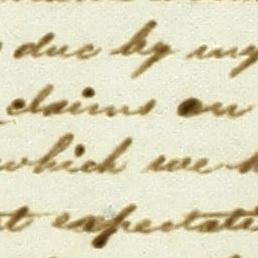 due by my
claims on
which we
expectati